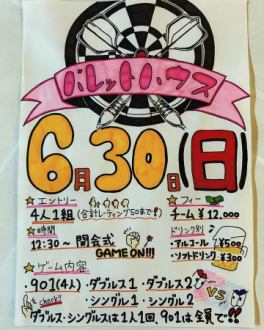 バレットハウス
6月30日(日)
☆エントリー
4人1組(合計レーティング50まで!)
☆フィー
チーム¥12,000
☆時間
12:30~ 開会式
GAME ON!!!
ドリンク別
・アルコール ¥500
・ソフトドリンク ¥300
☆ゲーム内容
・901(4人)・ダブルス1・ダブルス2
・シングル1・シングル2
check!!
VS
ダブルス・シングルスは1人1回、901は全員で!!